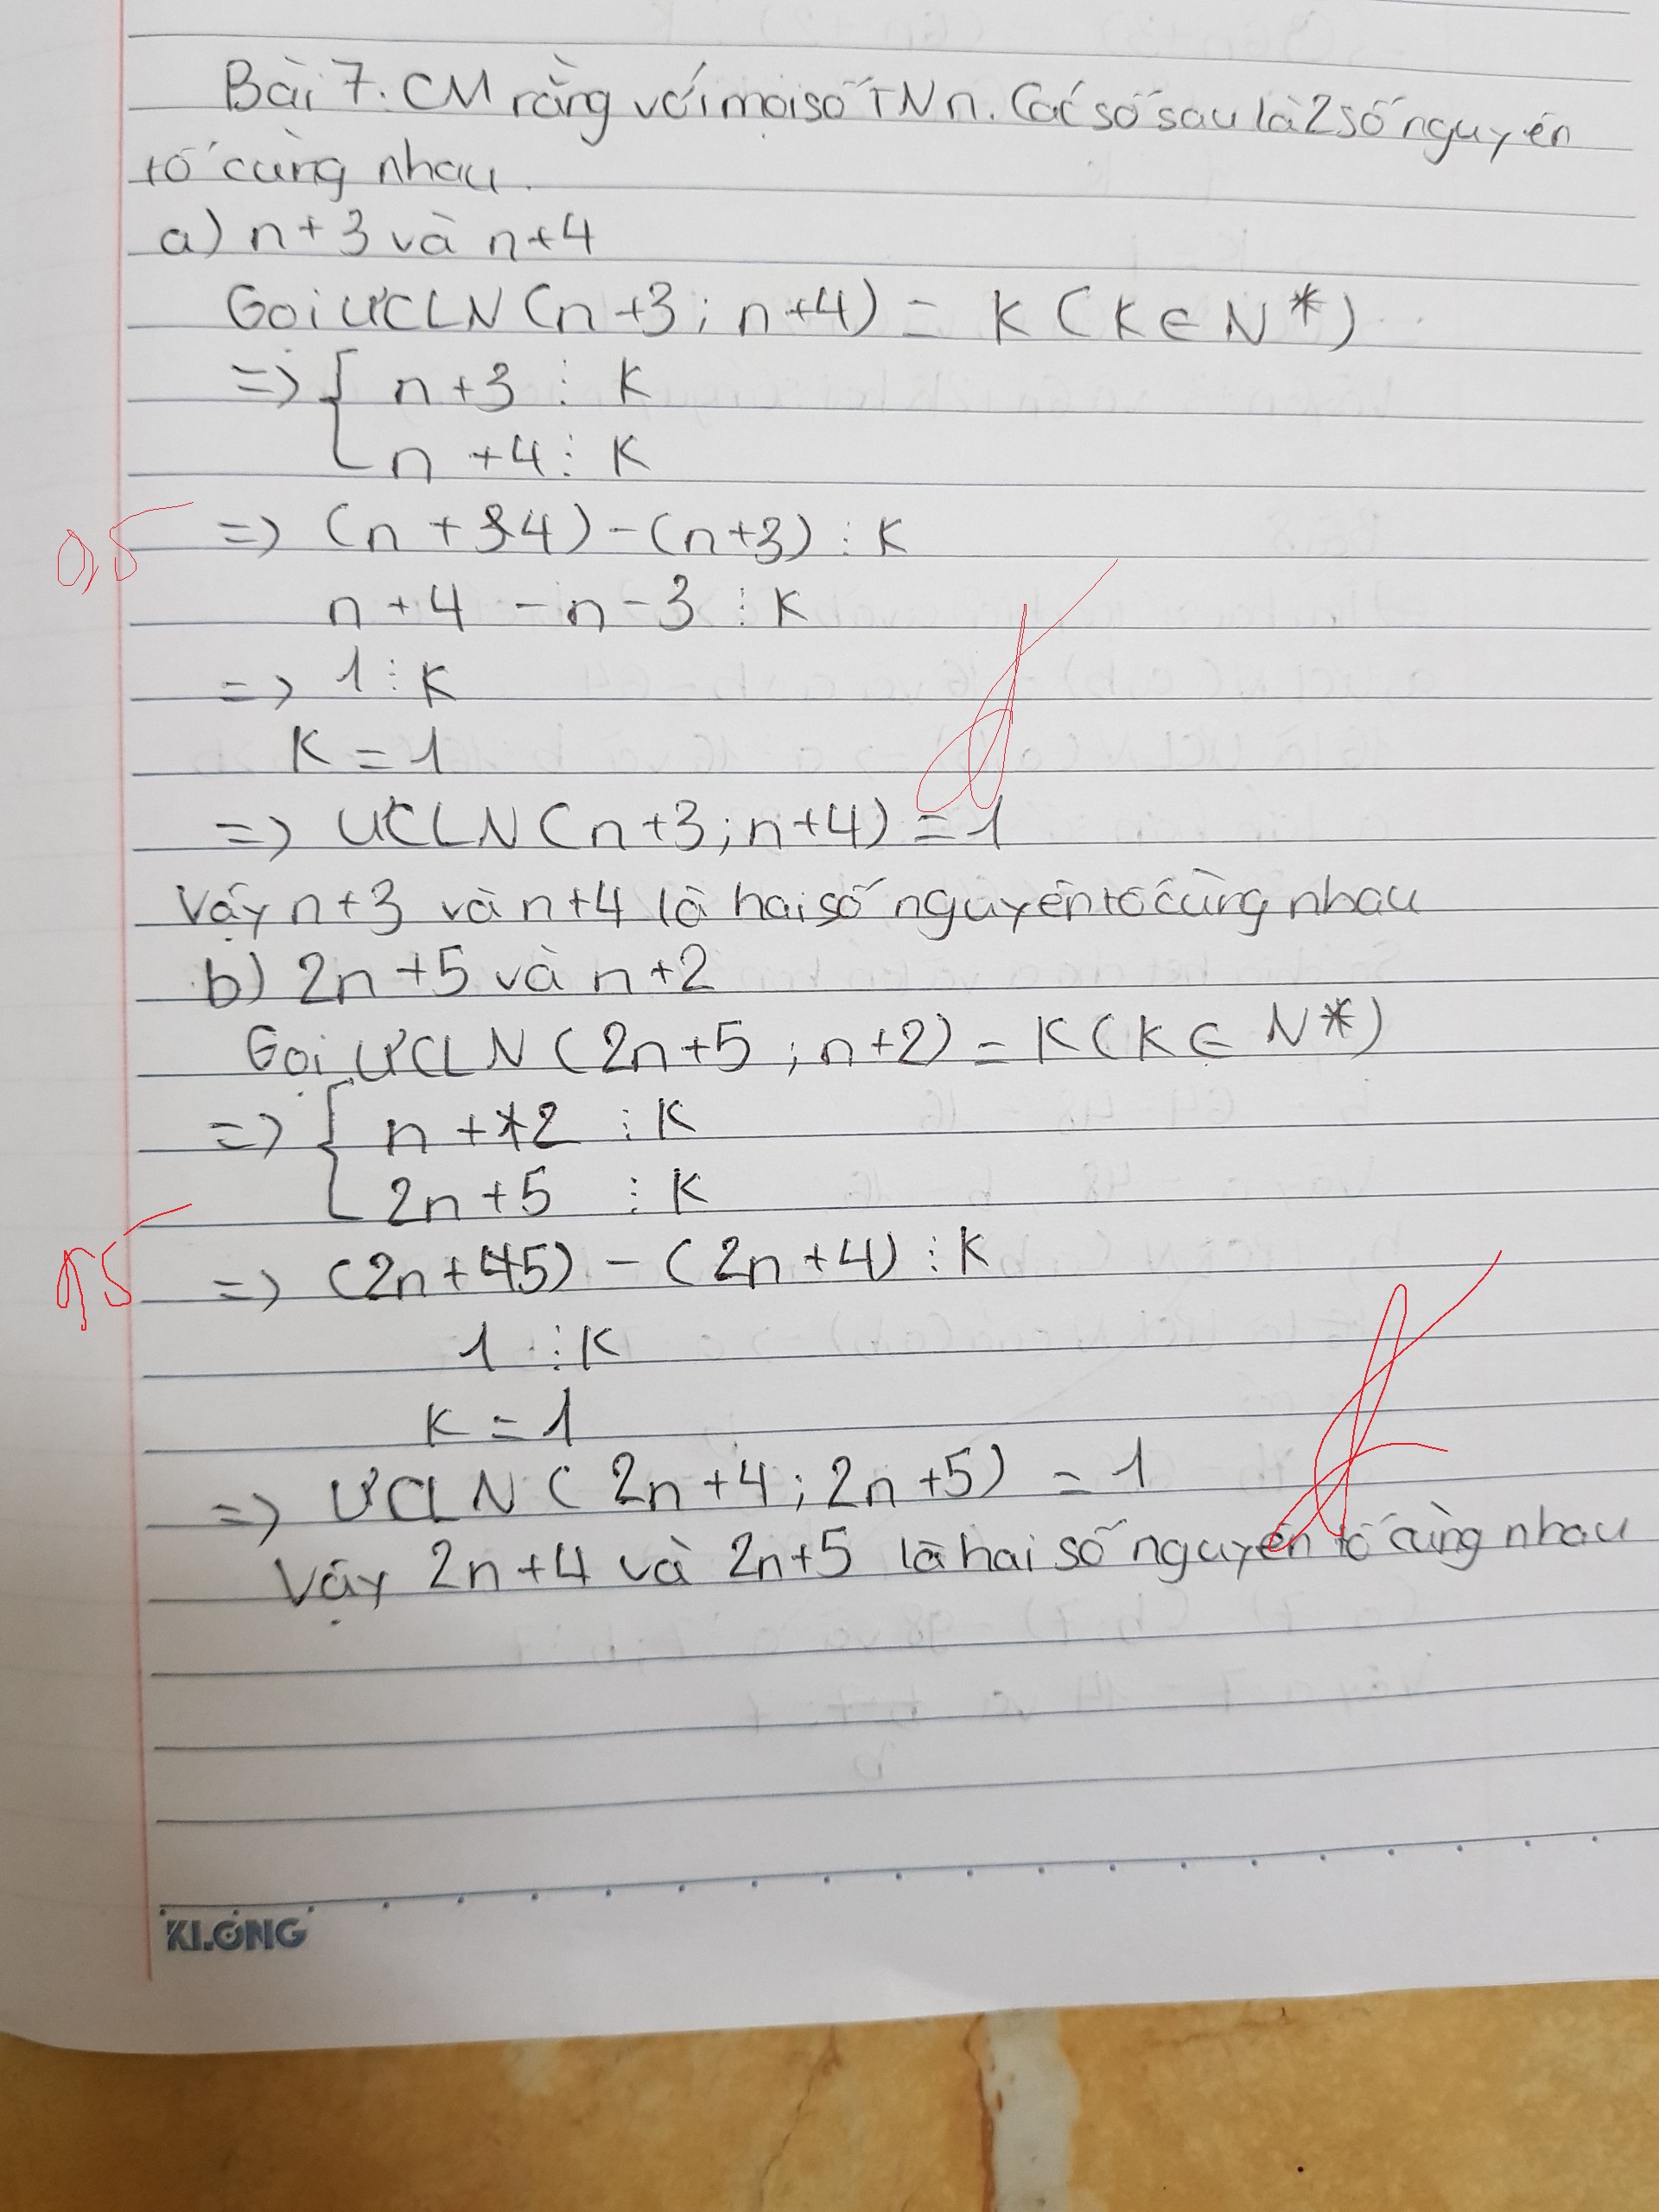 Bài 7. CM rằng với mọi số TN n. Các số sau là 2 số nguyên
tố cùng nhau.
a) n+3 và n+4
Gọi ƯCLN (n+3; n+4) = K (K ∈ N*)
=> { n+3 ⋮ K
n+4 ⋮ K
0,5
=> (n+4) - (n+3) ⋮ K
n+4 - n - 3 ⋮ K
=> 1 ⋮ K
K = 1
=> ƯCLN (n+3; n+4) = 1
Vậy n+3 và n+4 là hai số nguyên tố cùng nhau
b) 2n+5 và n+2
Gọi ƯCLN (2n+5; n+2) = K (K ∈ N*)
=> { n+2 ⋮ K
2n+5 ⋮ K
0,5
=> (2n+5) - (2n+4) ⋮ K
1 ⋮ K
K = 1
=> ƯCLN (2n+4; 2n+5) = 1
Vậy 2n+4 và 2n+5 là hai số nguyên tố cùng nhau
KLONG